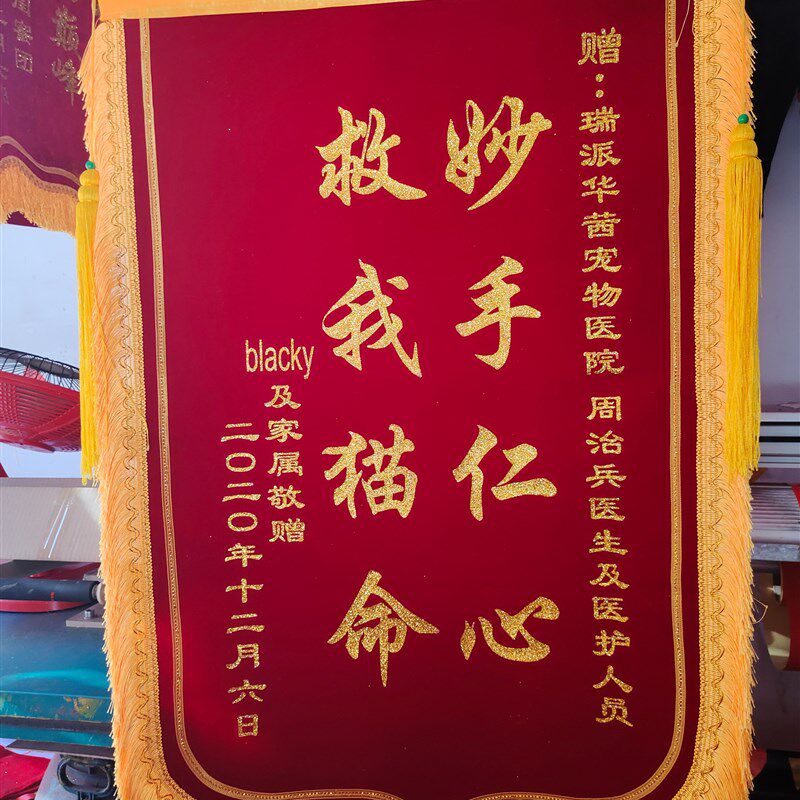 赠：瑞派华茜宠物医院 周治兵医生及医护人员
妙手仁心
救我猫命
blacky
及家属敬赠
二〇二〇年十二月六日
巅峰